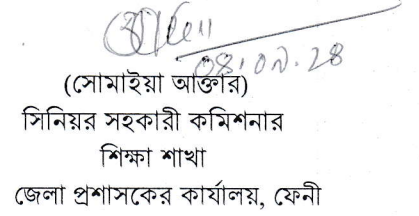 ০৪.০৯.২৪
(সোমাইয়া আক্তার)
সিনিয়র সহকারী কমিশনার
শিক্ষা শাখা
জেলা প্রশাসকের কার্যালয়, ফেনী